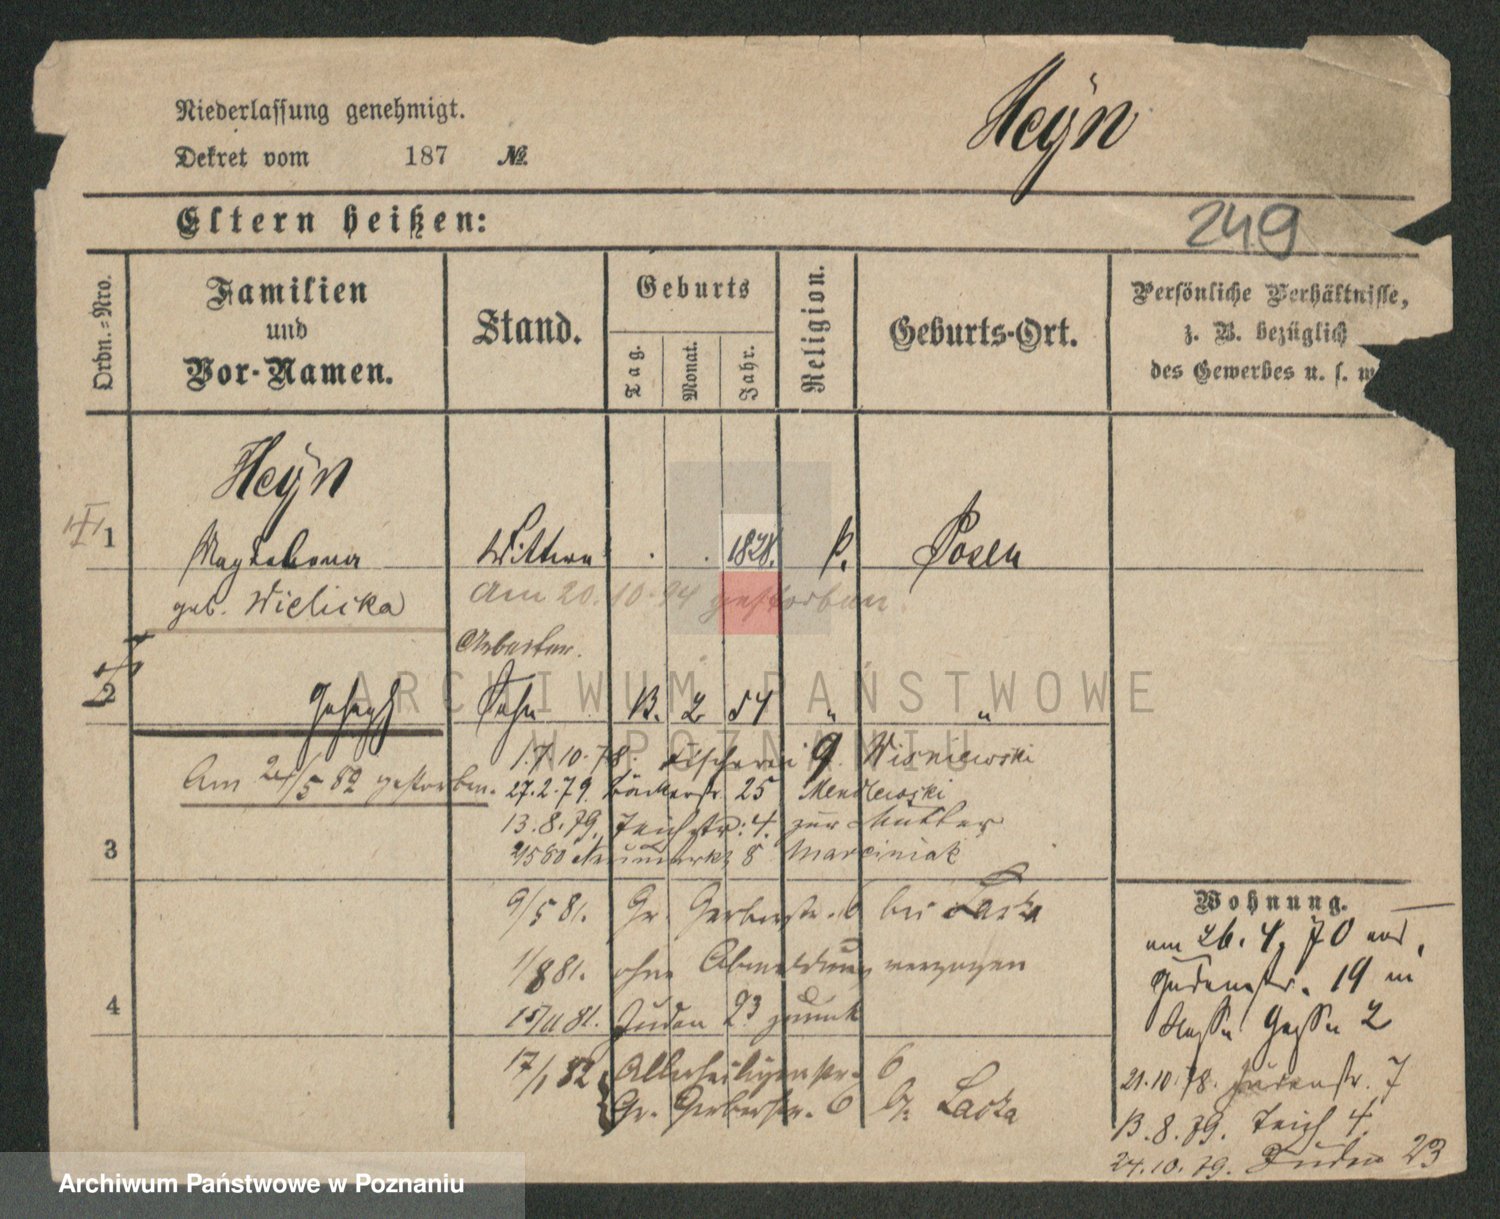 Niederlassung genehmigt.
Dekret vom 187 №
Heÿn
Eltern heißen:
249
Ordn.=Nro.
Familien
und
Vor-Namen.
Stand.
Geburts
Tag.
Monat.
Jahr.
Religion.
Geburts-Ort.
Persönliche Verhältnisse,
z. B. bezüglich
des Gewerbes u. s. w
Heÿn
1 Magdalena Wittwe . . 1828. k. Posen
geb. Wielicka Am 20.10.94 gestorben.
Arbeiter.
2 Joseph Sohn 13. 2 54 " "
ARCHIWUM PAŃSTWOWE
W POZNANIU
17.10.78. Fischerei 9. Wisniewski
Am 24/5 82 gestorben. 27.2.79. Bäckerstr 25 Mendlewski
13.8.79. Teichstr: 4. zur Mutter
3 Neumarkt 8 Marciniak
9/5 81. Gr. Gerberstr. 6 bei Lacka
1/8 81. ohne Abmeldung verzogen
4 15/11 81. Juden 23 zurück
17/1 82 Allerheiligenstr. 6
Gr. Gerberstr. 6 b. Lacka
Wohnung.
am 26. 4. 70 von
Judenstr. 19 in
Gasse 2
21.10.78. Judenstr. 7
13.8.79. Teich 4.
24.10.79. Juden 23
Archiwum Państwowe w Poznaniu